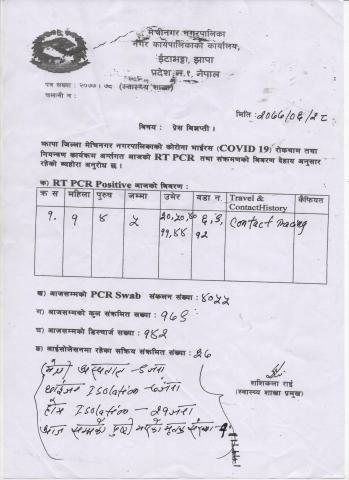 मेचीनगर नगरपालिका
नगर कार्यपालिकाको कार्यालय,
ईटाभट्टा, झापा
प्रदेश न.१, नेपाल
पत्र सख्या : २०७७।७८ (स्वास्थ्य शाखा)
चलानी न :
मिति : २०७७/०६/२८
विषय : प्रेस बिज्ञप्ती ।
झापा जिल्ला मेचिनगर नगरपालिकाको कोरोना भाईरस (COVID 19) रोकथाम तथा
नियन्त्रण कार्यक्रम अर्न्तगत आजको RT PCR तथा संक्रमणको बिबरण देहाय अनुसार
रहेको ब्यहोरा अनुरोध छ ।
क) RT PCR Positive आजको बिबरण :
क्र स महिला पुरुष जम्मा उमेर वडा न. Travel & ContactHistory कैफियत
१. १ ४ ५ २०,२०,४० ६,९, Contact Tracing
११,४४ १२
ख) आजसम्मको PCR Swab संकलन संख्या : ४०५५
ग) आजसम्मको कुल संक्रमित सख्या : १७६
घ) आजसम्मको डिस्चार्ज सख्या : १४२
ङ) आईसोलेसनमा रहेका सक्रिय संक्रमित संख्या :
अस्पताल
Isolation
होम Isolation - २१जना
आज सम्मको कुल
शशिकला राई
(स्वास्थ्य शाखा प्रमुख)